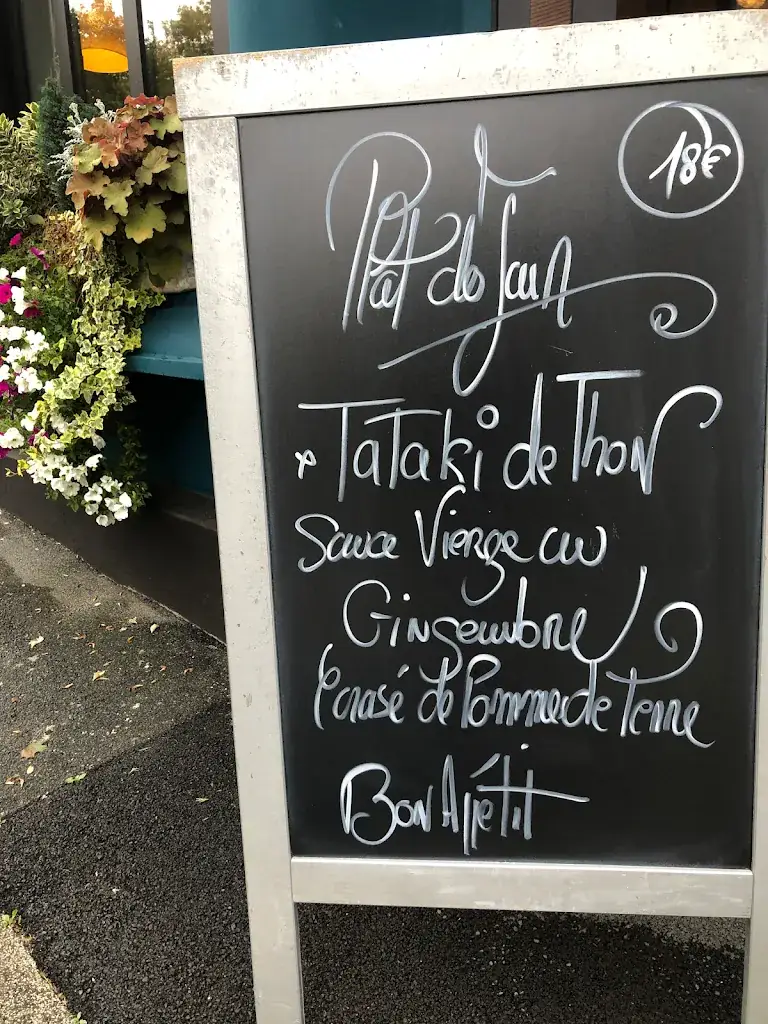 18€
Plat du Jour
* Tataki de Thon
Sauce Vierge au
Gingembre
Ecrasé de Pomme de Terre
Bon Appétit